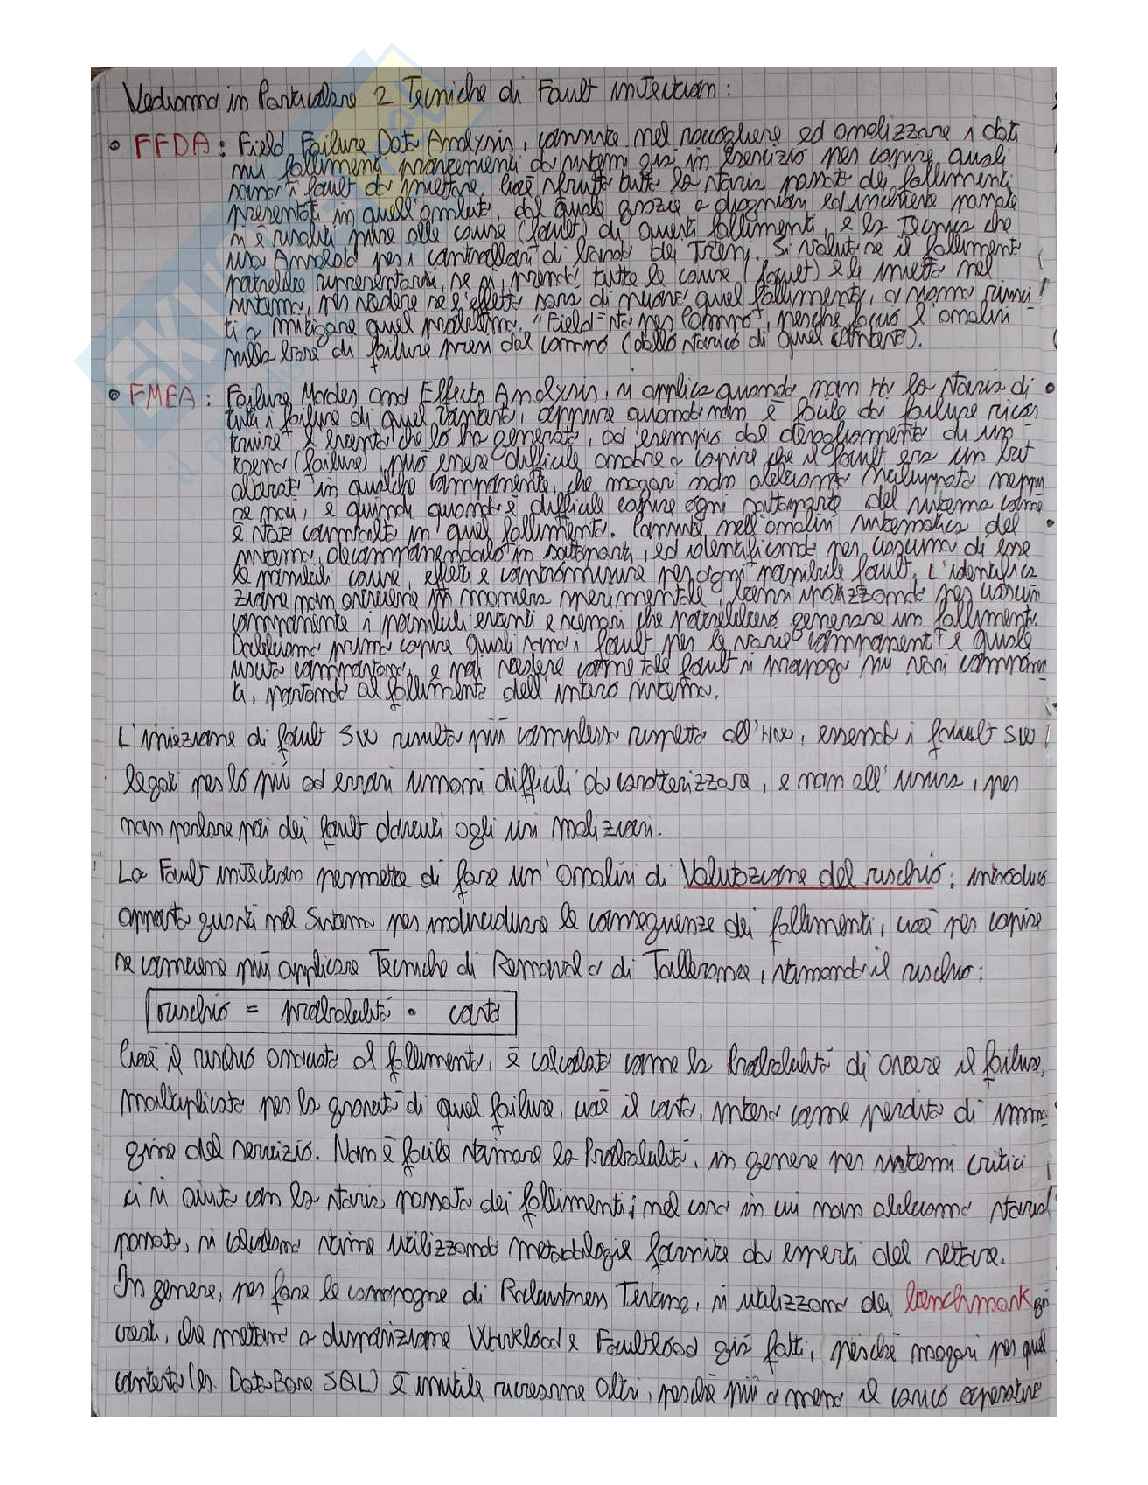 Vediamo in Particolare 2 Tecniche di Fault injection:
• FFDA: Field Failure Data Analysis, consiste nel raccogliere ed analizzare i dati
sui fallimenti provenienti da sistemi già in esercizio per capire quali
siano i fault da iniettare, cioè sfrutta tutta la storia passata dei fallimenti
presentati in quell'ambito, dal quale grazie a diagnosi ed inchieste passate
si è risaliti pure alle cause (fault) di questi fallimenti, e la Tecnica che
usa Ansaldo per i controllori di bordo dei Treni. Si valuta se il fallimento
potrebbe ripresentarsi, se si, prendi tutte le cause (fault) e le inietti nel
sistema, per vedere se l'effetto sarà di nuovo quel fallimento, o siamo riusci
ti a mitigare quel problema. "Field" sta per "campo", perché faccio l'analisi
sulla base di failure presi dal campo (dallo storico di quel contesto).
• FMEA: Failure Modes and Effects Analysis, si applica quando non Ho la storia di
tutti i failure di quel contesto, oppure quando non è facile da failure ricos
truire l'evento che lo ha generato, ad esempio dal deragliamento di un
treno (failure), può essere difficile andare a capire che il fault era un bit
alterato in qualche componente, che magari non abbiamo sviluppato neppu
re noi, e quindi quando è difficile capire ogni sottoparte del sistema come
è stata coinvolta in quel fallimento. Consiste nell'analisi sistematica del
sistema, decomponendolo in sottoparti, ed identificando per ciascuna di esse
le possibili cause, effetti e contromisure per ogni possibile fault. L'identifica
zione non avviene in maniera sperimentale, bensì ipotizzando per ciascun
componente i possibili eventi e scenari che potrebbero generare un fallimento.
Dobbiamo prima capire quali sono i fault per le varie componenti e quale
uscita comportano, e poi vedere come tale fault si propaga sui vari componen
ti, portando al fallimento dell'intero sistema.
L'iniezione di fault SW risulta più complessa rispetto all'HW, essendo i fault SW
legati per lo più ad errori umani difficili da caratterizzare, e non all'usura, per
non parlare poi dei fault dovuti agli usi maliziosi.
La Fault injection permette di fare un'analisi di Valutazione del rischio: introduco
apposta guasti nel Sistema per individuare le conseguenze dei fallimenti, cioè per capire
se conviene più applicare Tecniche di Removal o di Tolleranza, stimando il rischio:
rischio = probabilità • costo
Cioè il rischio associato al fallimento, è calcolato come la Probabilità di avere il failure,
moltiplicata per la gravità di quel failure, cioè il costo, inteso come perdita di imma-
gine del servizio. Non è facile stimare la Probabilità, in genere per sistemi critici
ci si aiuta con la storia passata dei fallimenti; nel caso in cui non abbiamo storia
passata, si calcolano stime utilizzando metodologie fornite da esperti del settore.
In genere, per fare le campagne di Robustness Testing, si utilizzano dei benchmark già
creati, che mettono a disposizione Workload e Faultload già fatti, perché magari per quel
contesto (es. DataBase SQL) è inutile ricrearne altri, perché più o meno il carico operativo